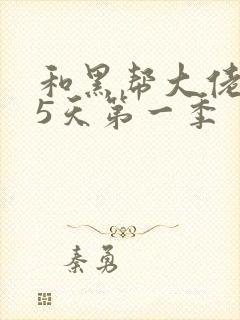 和黑帮大佬
5天第一季
秦勇